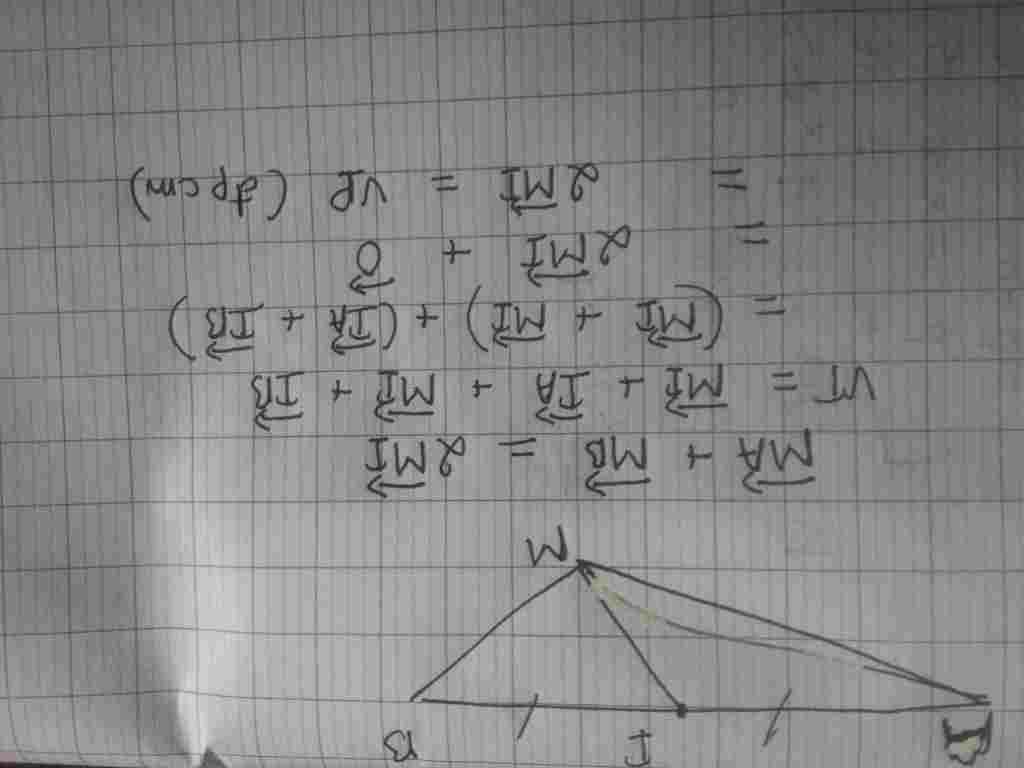 A I B
M
MA + MB = 2MI
VT = MI + IA + MI + IB
= (MI + MI) + (IA + IB)
= 2MI + 0
= 2MI = VP (đpcm)